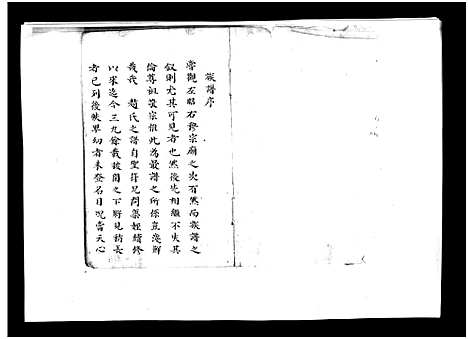 族譜序
嘗觀左昭右穆宗廟之次有然而族譜之
叙則尤其可見者也然後先相繼不失其
倫尊祖敬宗惟此為最譜之所係豈淺鮮
哉我 趙氏之譜自聖符兄問渠姪續修
以來迄今三九餘載披閱之下所見稍長
者已列後帙早幼者未登名目況當天心